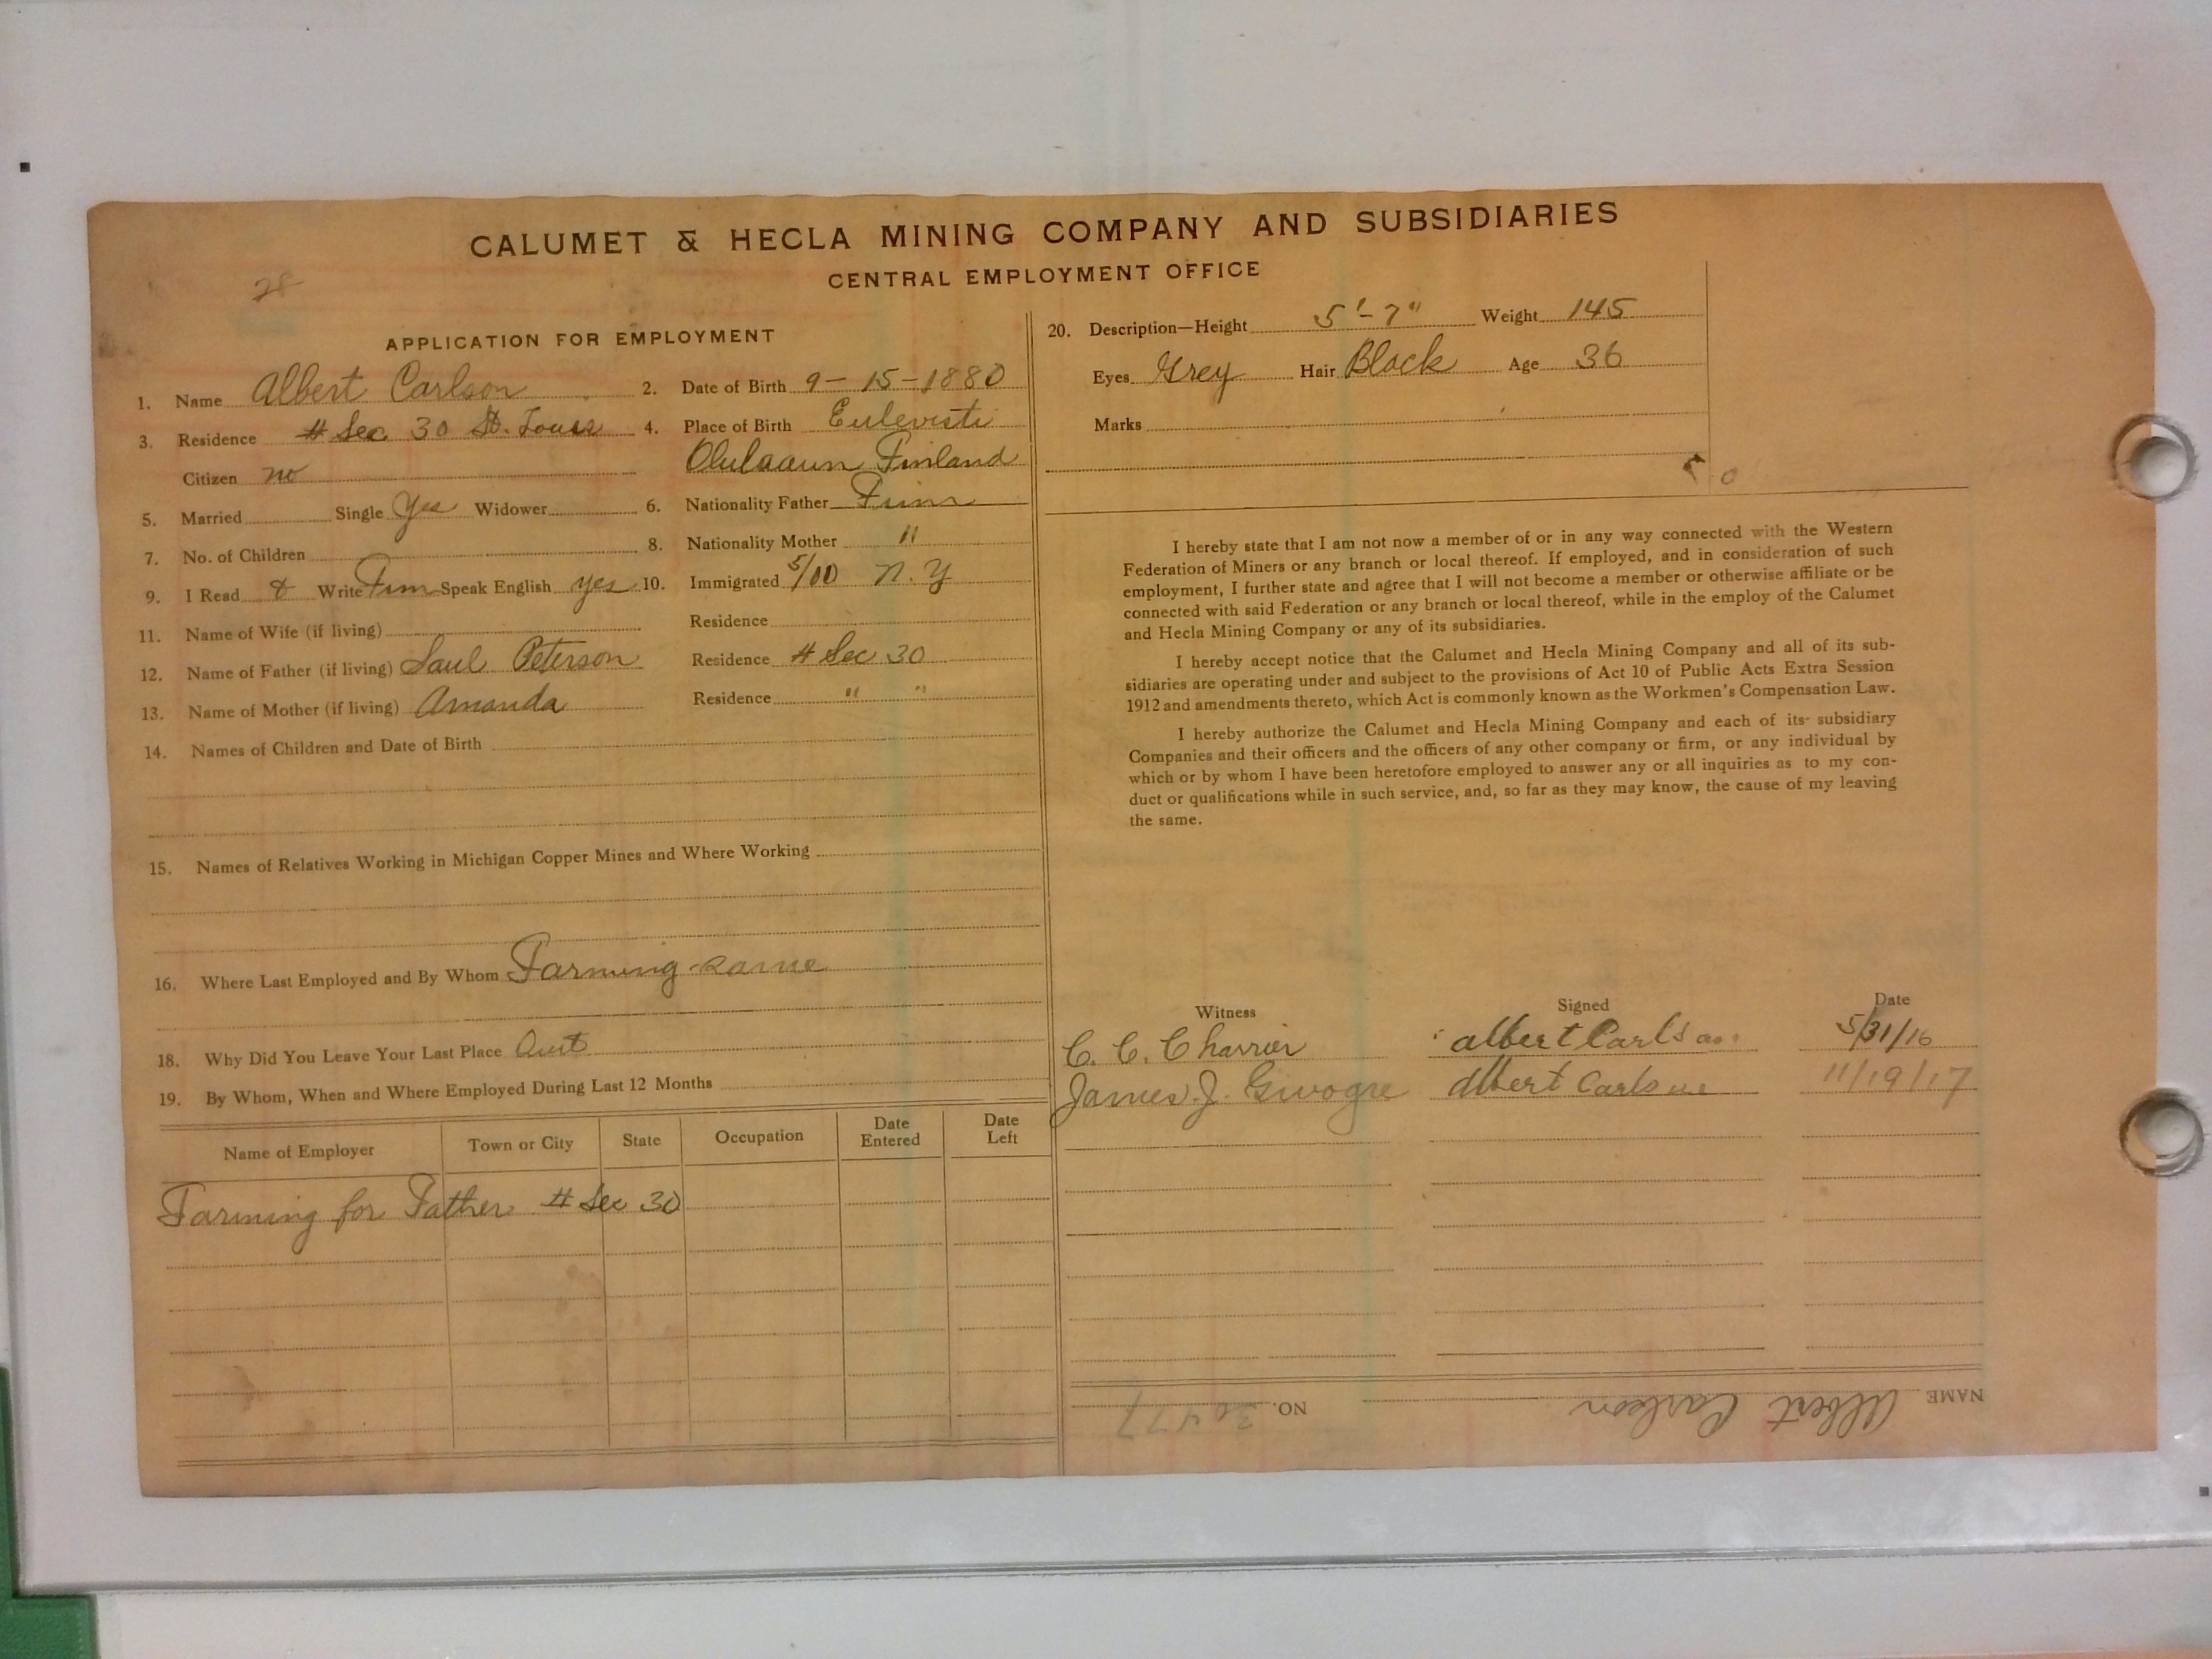 CALUMET & HECLA MINING COMPANY AND SUBSIDIARIES
CENTRAL EMPLOYMENT OFFICE
28
APPLICATION FOR EMPLOYMENT
1. Name Albert Carlson
2. Date of Birth 9-15-1880
3. Residence # Sec 30 St. Louis
4. Place of Birth
Finland
Citizen no
5. Married Single Yes Widower
6. Nationality Father Finn
7. No. of Children
8. Nationality Mother "
9. I Read & Write Finn Speak English yes
10. Immigrated 5/00 N.Y
11. Name of Wife (if living) Residence
12. Name of Father (if living) Saul Peterson Residence # Sec 30
13. Name of Mother (if living) Amanda Residence " "
14. Names of Children and Date of Birth
15. Names of Relatives Working in Michigan Copper Mines and Where Working
16. Where Last Employed and By Whom Farming-same
18. Why Did You Leave Your Last Place
19. By Whom, When and Where Employed During Last 12 Months
Name of Employer Town or City State Occupation Date Entered Date Left
Farming for Father # Sec 30
20. Description—Height 5'-7" Weight 145
Eyes Grey Hair Black Age 36
Marks
I hereby state that I am not now a member of or in any way connected with the Western
Federation of Miners or any branch or local thereof. If employed, and in consideration of such
employment, I further state and agree that I will not become a member or otherwise affiliate or be
connected with said Federation or any branch or local thereof, while in the employ of the Calumet
and Hecla Mining Company or any of its subsidiaries.
I hereby accept notice that the Calumet and Hecla Mining Company and all of its sub-
sidiaries are operating under and subject to the provisions of Act 10 of Public Acts Extra Session
1912 and amendments thereto, which Act is commonly known as the Workmen's Compensation Law.
I hereby authorize the Calumet and Hecla Mining Company and each of its subsidiary
Companies and their officers and the officers of any other company or firm, or any individual by
which or by whom I have been heretofore employed to answer any or all inquiries as to my con-
duct or qualifications while in such service, and, so far as they may know, the cause of my leaving
the same.
Witness Signed Date
C. C. Charrier Albert Carlson 5/31/16
James J. Albert Carlson 11/19/17
NAME Albert Carlson NO. 20477